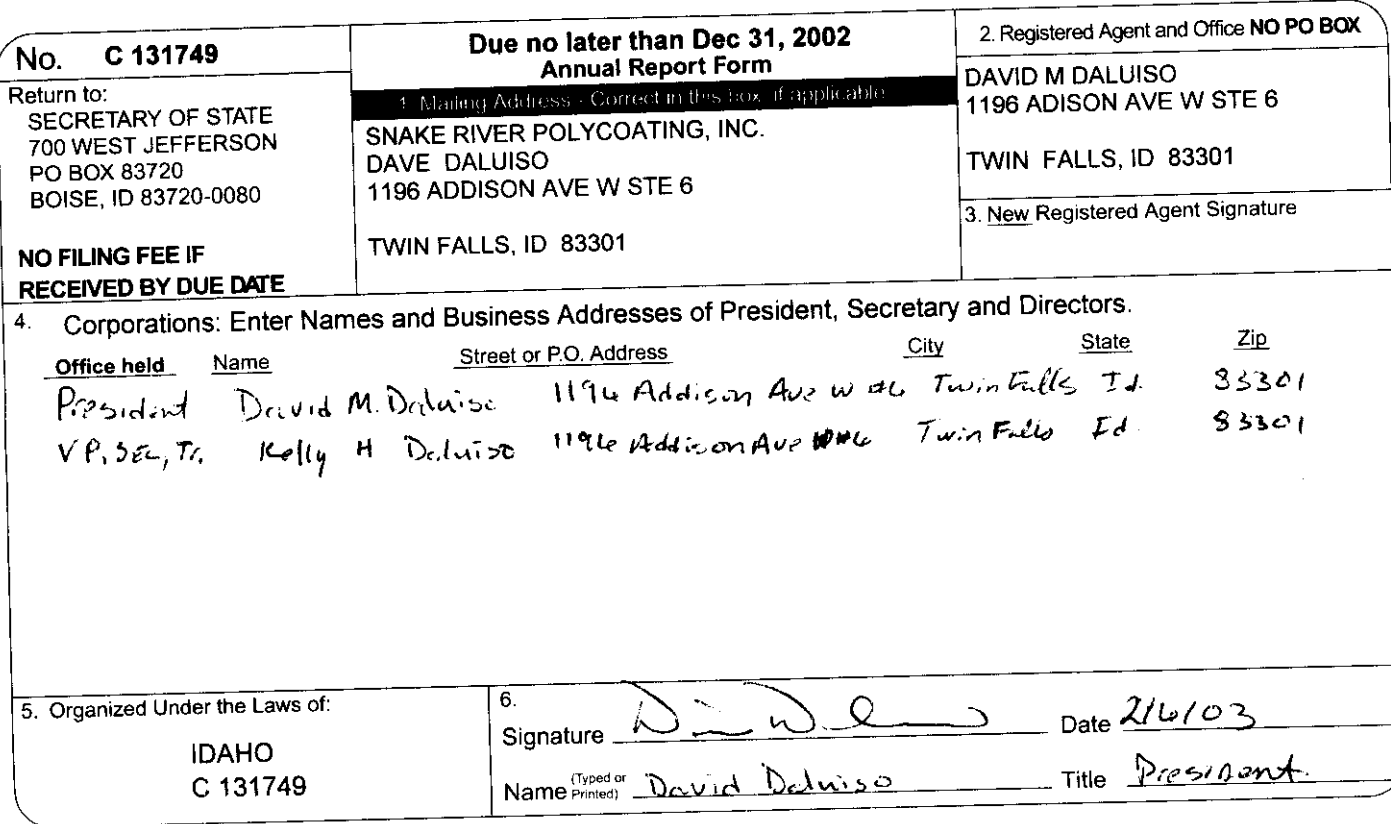 No. C 131749
Return to:
SECRETARY OF STATE
700 WEST JEFFERSON
PO BOX 83720
BOISE, ID 83720-0080
NO FILING FEE IF
RECEIVED BY DUE DATE
Due no later than Dec 31, 2002
Annual Report Form
1. Mailing Address - Correct in this box, if applicable
SNAKE RIVER POLYCOATING, INC.
DAVE DALUISO
1196 ADDISON AVE W STE 6
TWIN FALLS, ID 83301
2. Registered Agent and Office NO PO BOX
DAVID M DALUISO
1196 ADISON AVE W STE 6
TWIN FALLS, ID 83301
3. New Registered Agent Signature
4. Corporations: Enter Names and Business Addresses of President, Secretary and Directors.
Office held Name Street or P.O. Address City State Zip
President David M. Daluiso 1196 Addison Ave W #6 Twin Falls Id. 83301
VP, SEC, Tr. Kelly H Daluiso 1196 Addison Ave W #6 Twin Falls Id. 83301
5. Organized Under the Laws of:
IDAHO
C 131749
6.
Signature Date 2/6/03
Name (Typed or Printed) David Daluiso Title President